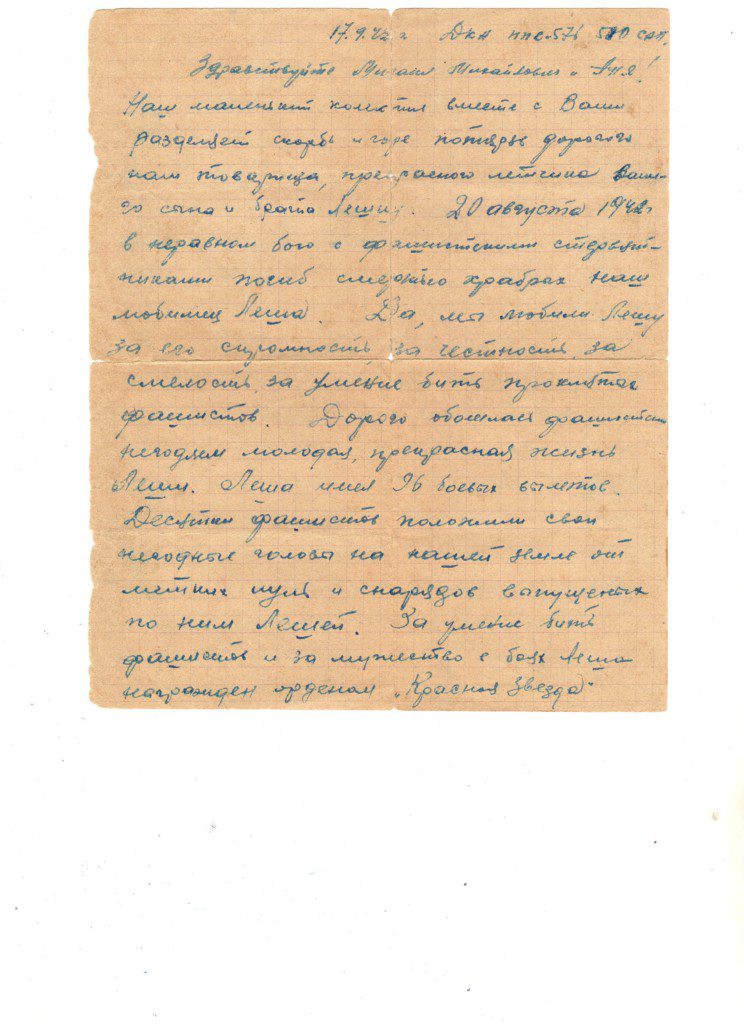 17.9.42 г Дка ппс 576 580 сап.
Здравствуйте Михаил Михайлович и Аня!
Наш маленький колектив вместе с Вами
разделяет скорбь и горе потерь дорогого
нам товарища, прекрасного летчика Ваше-
го сына и брата Лешу. 20 августа 1942 г
в неравном бою с фашистскими стервят-
никами погиб смертью храбрых наш
любимец Леша. Да, мы любили Лешу
за его скромность, за честность, за
смелость, за умение бить проклятых
фашистов. Дорого обошлась фашистским
негодяем молодая, прекрасная жизнь
Леши. Леша имел 96 боевых вылетов.
Десятки фашистов положили свои
негодные головы на нашей земле от
метких пуль и снарядов выпущеных
по ним Лешей. За умение бить
фашистов и за мужество в боях Леша
награжден орденом „Красная Звезда"